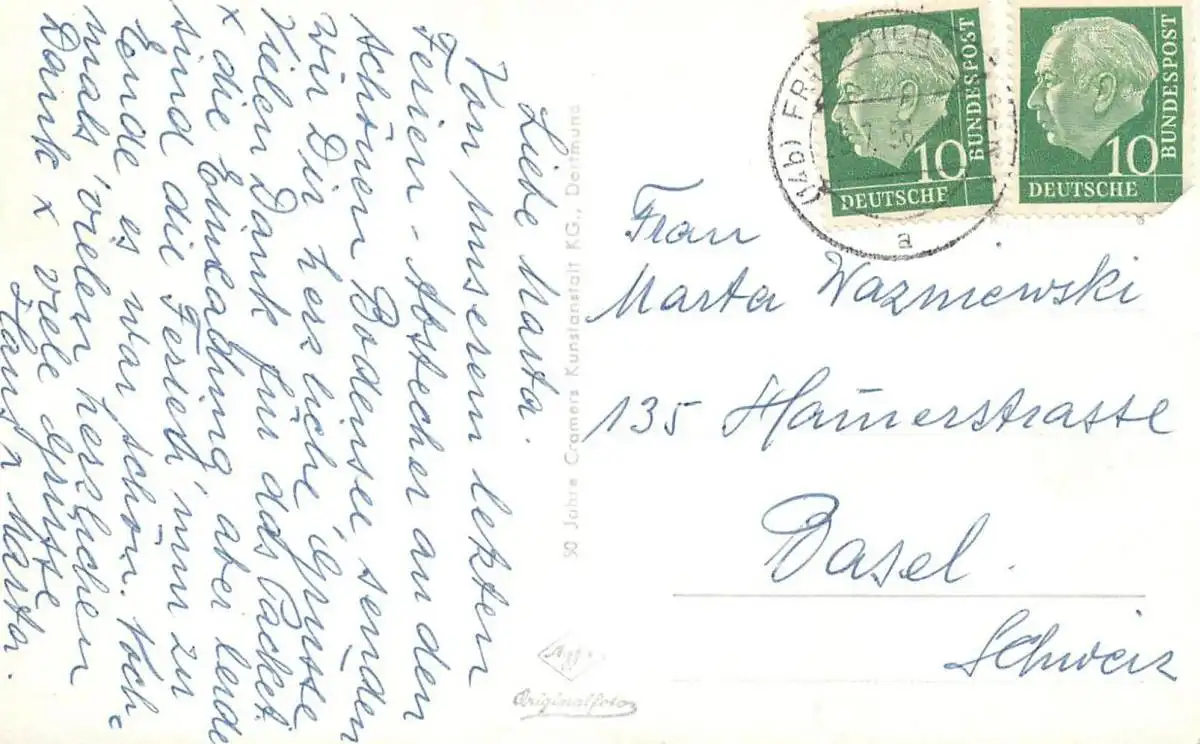 Liebe Marta.
Von unserem letzten
Ferien-Abstecher an den
schönen Bodensee senden
wir Dir herzliche Grüsse
Vielen Dank für das Packet
x die Einladung aber leider
sind die Ferien nun zu
Ende es war schön. Noch-
mals vielen herzlichen
Dank x viele Grüsse
Hans x Marta.
50 Jahre Cramers Kunstanstalt KG., Dortmund
Agfa
Originalfoto
(14b)
a
10
DEUTSCHE
BUNDESPOST
10
DEUTSCHE
BUNDESPOST
Frau
Marta Wazniewski
135
Basel.
Schweiz